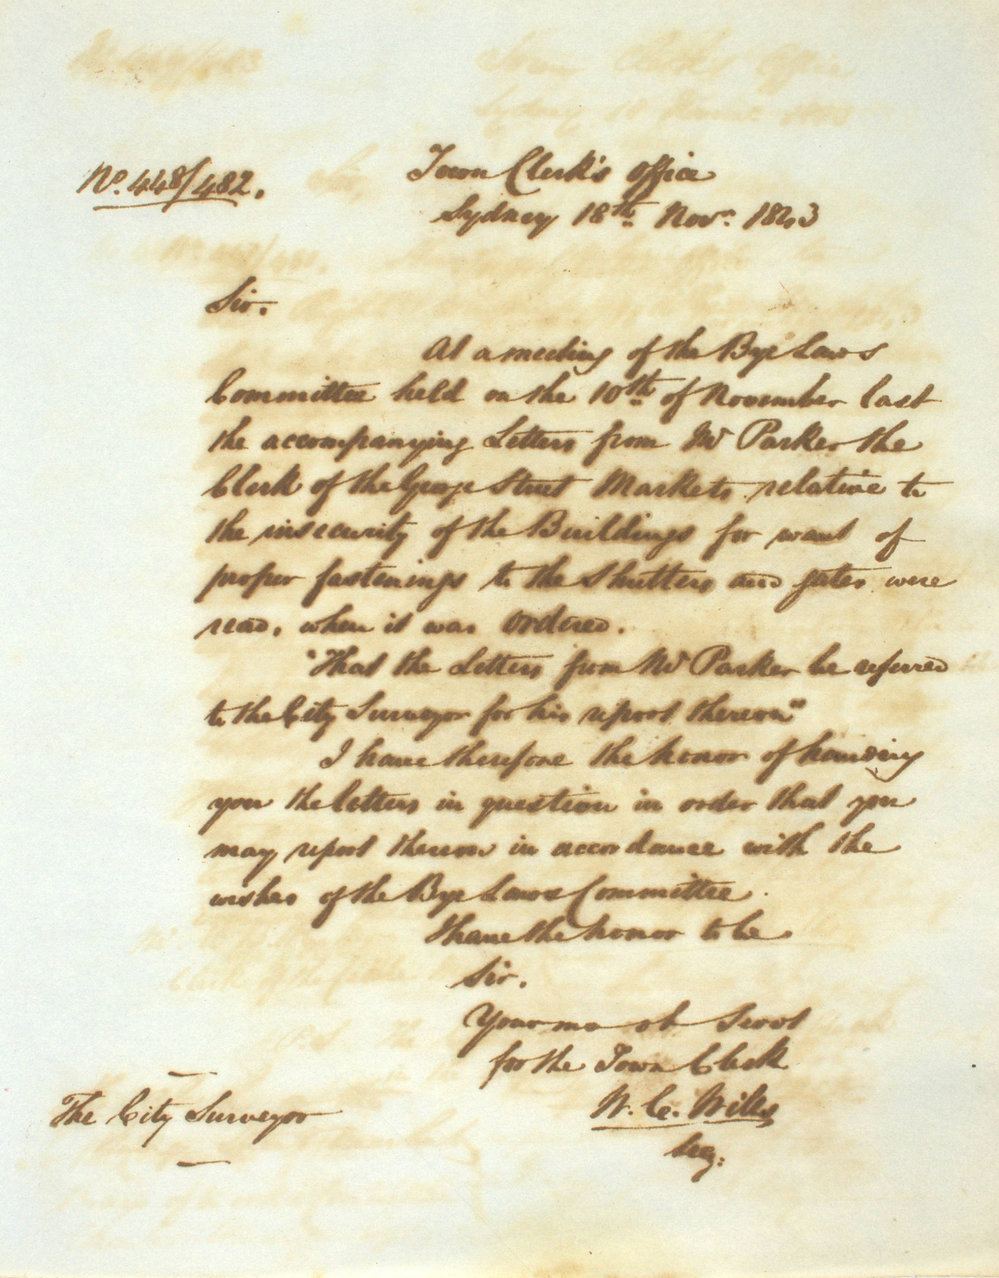 No. 448/482.
Town Clerk's Office
Sydney 18th. Novr. 1843
Sir.
At a meeting of the Bye Laws
Committee held on the 10th of November last
the accompanying Letters from Mr Parker the
Clerk of the George Street Markets relative to
the insecurity of the Buildings for want of
proper fastenings to the Shutters and gates were
read, when it was Ordered.
"That the Letters from Mr Parker be referred
to the City Surveyor for his report thereon"
I have therefore the honor of handing
you the letters in question in order that you
may report thereon in accordance with the
wishes of the Bye Laws Committee.
I have the honor to be
Sir.
Your mo ob Servt
for the Town Clerk
W. C. Wills
The City Surveyor